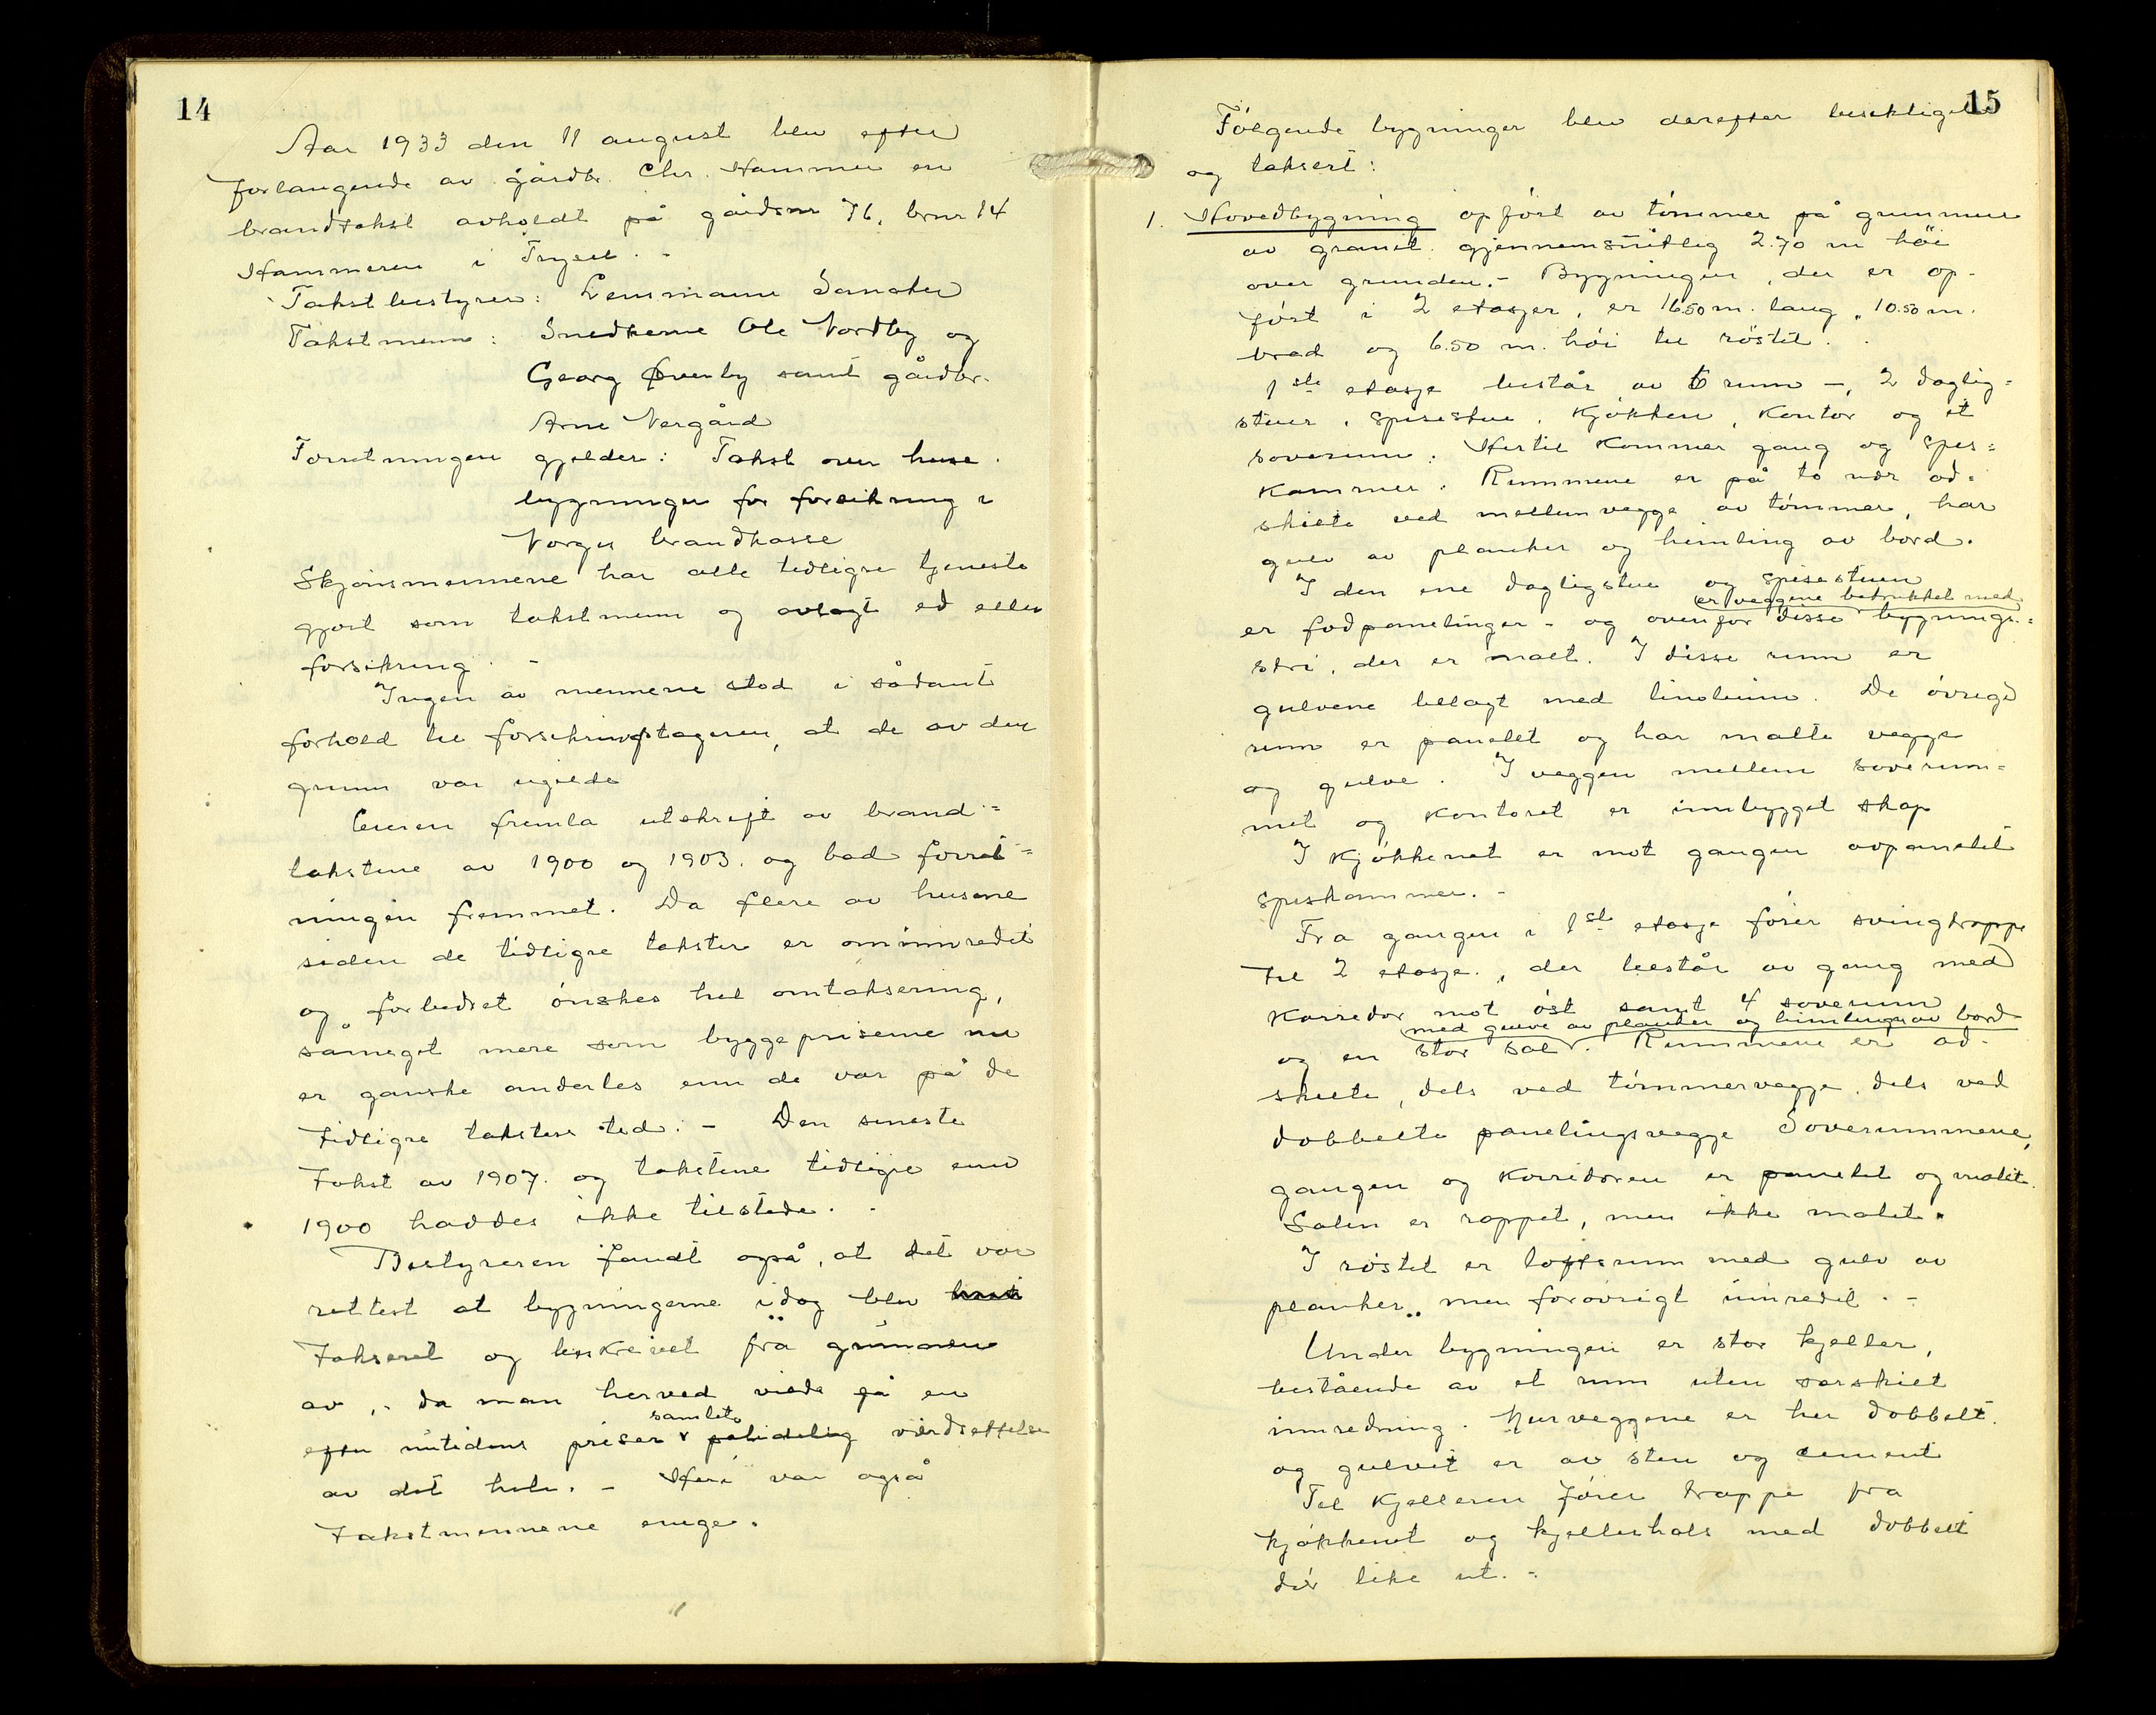 14
Aar 1933 den 11 august blev efter
forlangende av gårdbr. Chr. Hammer en
brandtakst avholdt på gårdsnr 76, brnr 14
Hammeren i Trysil. -
Takstbestyrer: Lensmann Sanaker
Takstmenn: Snedkerne Ole Nordby og
Georg Øverby samt gårdbr.
Arne Nergård
Forretningen gjelder: Takst over huse
bygninger for forsikring i
Norges brandkasse
Skjønsmennene har alle tidligre tjeneste
gjort som takstmenn og avlagt ed eller
forsikring. -
Ingen av mennene stod i sådant
forhold til forsikringstageren, at de av den
grunn var ugilde
Eieren fremla utskrift av brand=
takstene av 1900 og 1903. og bad forret=
ningen fremmet. Da flere av husene
siden de tidligre takster er ominnredet
og forbedret ønskes hel omtaksering,
sameget mere som byggeprisene nu
er ganske anderles enn de var på de
tidligre taksters tid. - Den seneste
takst av 1907. og takstene tidligre enn
1900 haddes ikke tilstede. -
Bestyreren fandt også, at det var
rettest at bygningerne idag blev
taksert og beskrevet fra grunnen
av, - da man herved vilde få en
samlet
efter nutidens priser pålidelig værdsettelse
av det hele. - Heri var også
takstmennene enige.
15
Følgende bygninger blev derefter besiktiget
og taksert:
1. Hovedbygning opført av tømmer på grunnmur
av granit. gjennemsnitlig 2.70 m høi
over grunden. - Bygningen, der er op-
ført i 2 etasjer, er 16.50 m. lang, 10.50 m.
bred og 6.50 m. høi til røstet. -
1ste etasje består av 6 rum -, 2 daglig=
stuer, spisestue, kjøkken, kontor og et
soverum. Hertil kommer gang og spis=
kammer. Rummene er på to nær ad=
skilte ved mellemvegge av tømmer, har
gulv av planker og himling av bord.
I den ene dagligstue og spisestuen
er veggene betrukket med
er fodpanelinger - og ovenfor disse bygnings=
stri, der er malt. I disse rum er
gulvene belagt med linoleum. De øvrige
rum er panelet og har malte vegge
og gulve. I veggen mellem soverum=
met og kontoret er innbygget skap
I kjøkkenet er mot gangen avpanelet
spiskammer. -
Fra gangen i 1ste etasje fører svingtrappe
til 2 etasje., der består av gang med
korridor mot øst samt 4 soverum
med gulve av planker og himlinger av bord
og en stor sal. Rummene er ad-
skilte, dels ved tømmervegge, dels ved
dobbelte panelingsvegge Soverummene,
gangen og korridoren er panelet og malet.
Salen er rappet, men ikke malet.
I røstet er loftsrum med gulv av
planker, men forøvrigt uinredet. -
Under bygningen er stor kjeller,
bestående av et rum uten særskilt
innredning. Murveggene er her dobbelt.
og gulvet er av sten og cement
Til kjelleren fører trappe fra
kjøkkenet og kjellerhals med dobbelt
dør like ut. -